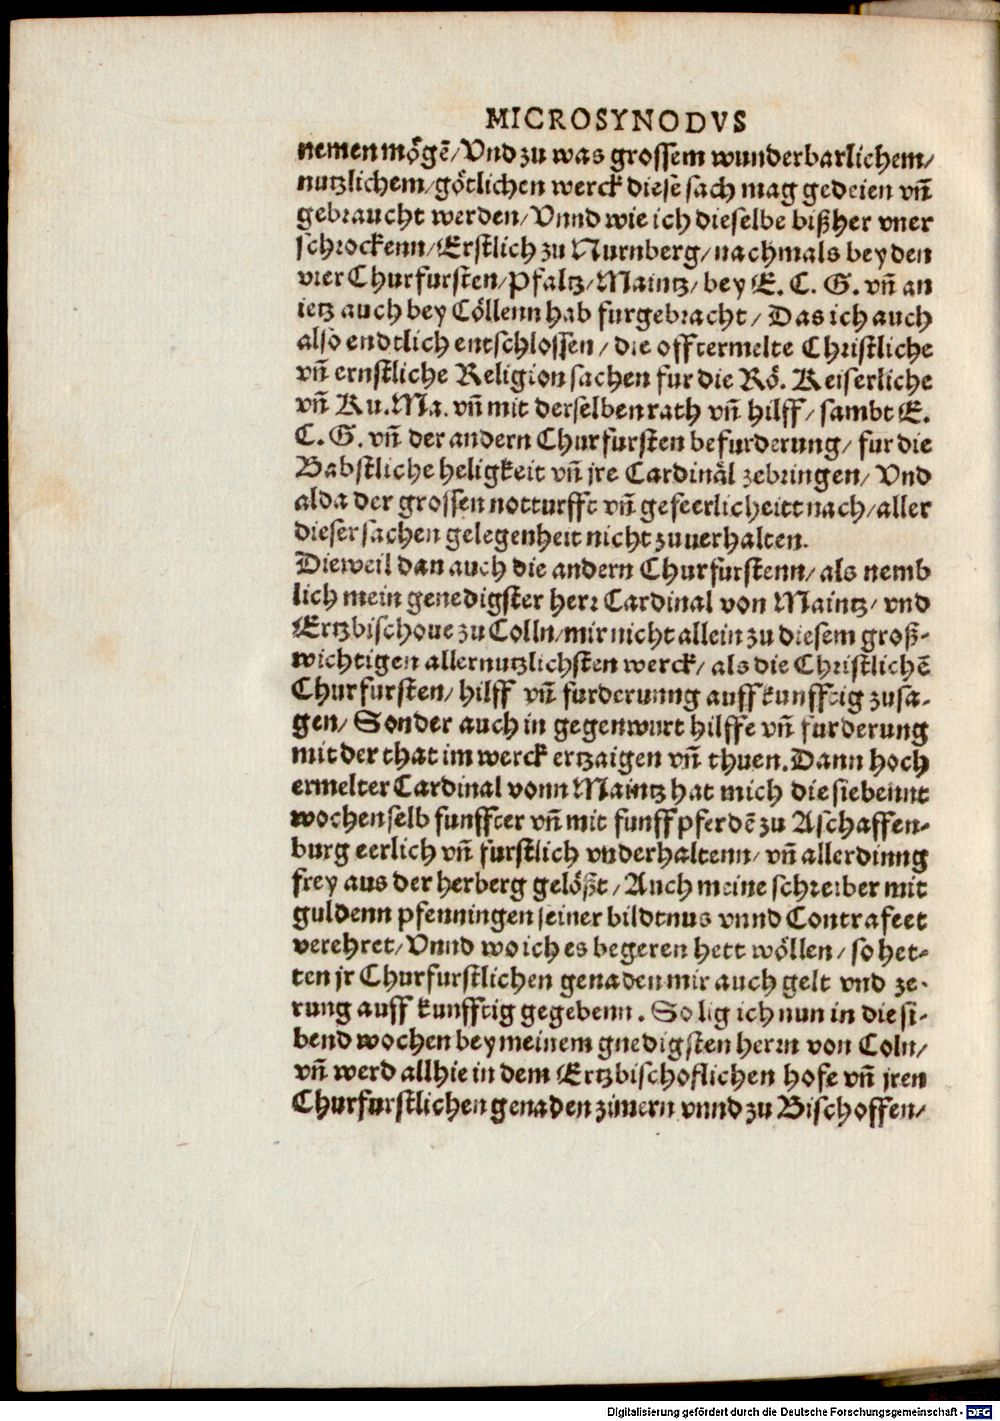 MICROSYNODVS
nemen mögē/ Vnd zu was grossem wunderbarlichem/
nutzlichem/ götlichen werck diese sach mag gedeien vñ
gebraucht werden/ Vnnd wie ich dieselbe bißher vner
schrockenn/ Erstlich zu Nurnberg/ nachmals bey den
vier Churfursten/ Pfaltz/ Maintz/ bey E. C. G. vñ an
ietz auch bey Cöllenn hab furgebracht/ Das ich auch
also endtlich entschlossen/ die offtermelte Christliche
vñ ernstliche Religion sachen fur die Rö. Keiserliche
vñ Ku. Ma. vñ mit derselben rath vñ hilff/ sambt E.
C. G. vñ der andern Churfursten befurderung/ fur die
Babstliche heligkeit vñ jre Cardinäl zebringen/ Vnd
alda der grossen notturfft vñ gefeerlicheitt nach/ aller
dieser sachen gelegenheit nicht zuuerhalten.
Dieweil dan auch die andern Churfurstenn/ als nemb
lich mein genedigster herr Cardinal von Maintz/ vnd
Ertzbischoue zu Colln/ mir nicht allein zu diesem groß-
wichtigen allernutzlichsten werck/ als die Christlichē
Churfursten/ hilff vñ furderunng auff kunfftig zusa-
gen/ Sonder auch in gegenwurt hilffe vñ furderung
mit der that im werck ertzaigen vñ thuen. Dann hoch
ermelter Cardinal vonn Maintz hat mich die siebennt
wochen selb funffter vñ mit funff pferdē zu Aschaffen-
burg eerlich vñ furstlich vnderhaltenn/ vñ allerdinng
frey aus der herberg gelößt/ Auch meine schreiber mit
guldenn pfenningen seiner bildtnus vnnd Contrafeet
verehret/ Vnnd wo ich es begeren hett wöllen/ so het-
ten jr Churfurstlichen genaden mir auch gelt vnd ze-
rung auff kunfftig gegebenn. So lig ich nun in die si-
bend wochen bey meinem gnedigsten herrn von Coln/
vñ werd allhie in dem Ertzbischoflichen hofe vñ jren
Churfurstlichen genaden zimern vnnd zu Bischoffen/
Digitalisierung gefördert durch die Deutsche Forschungsgemeinschaft - DFG